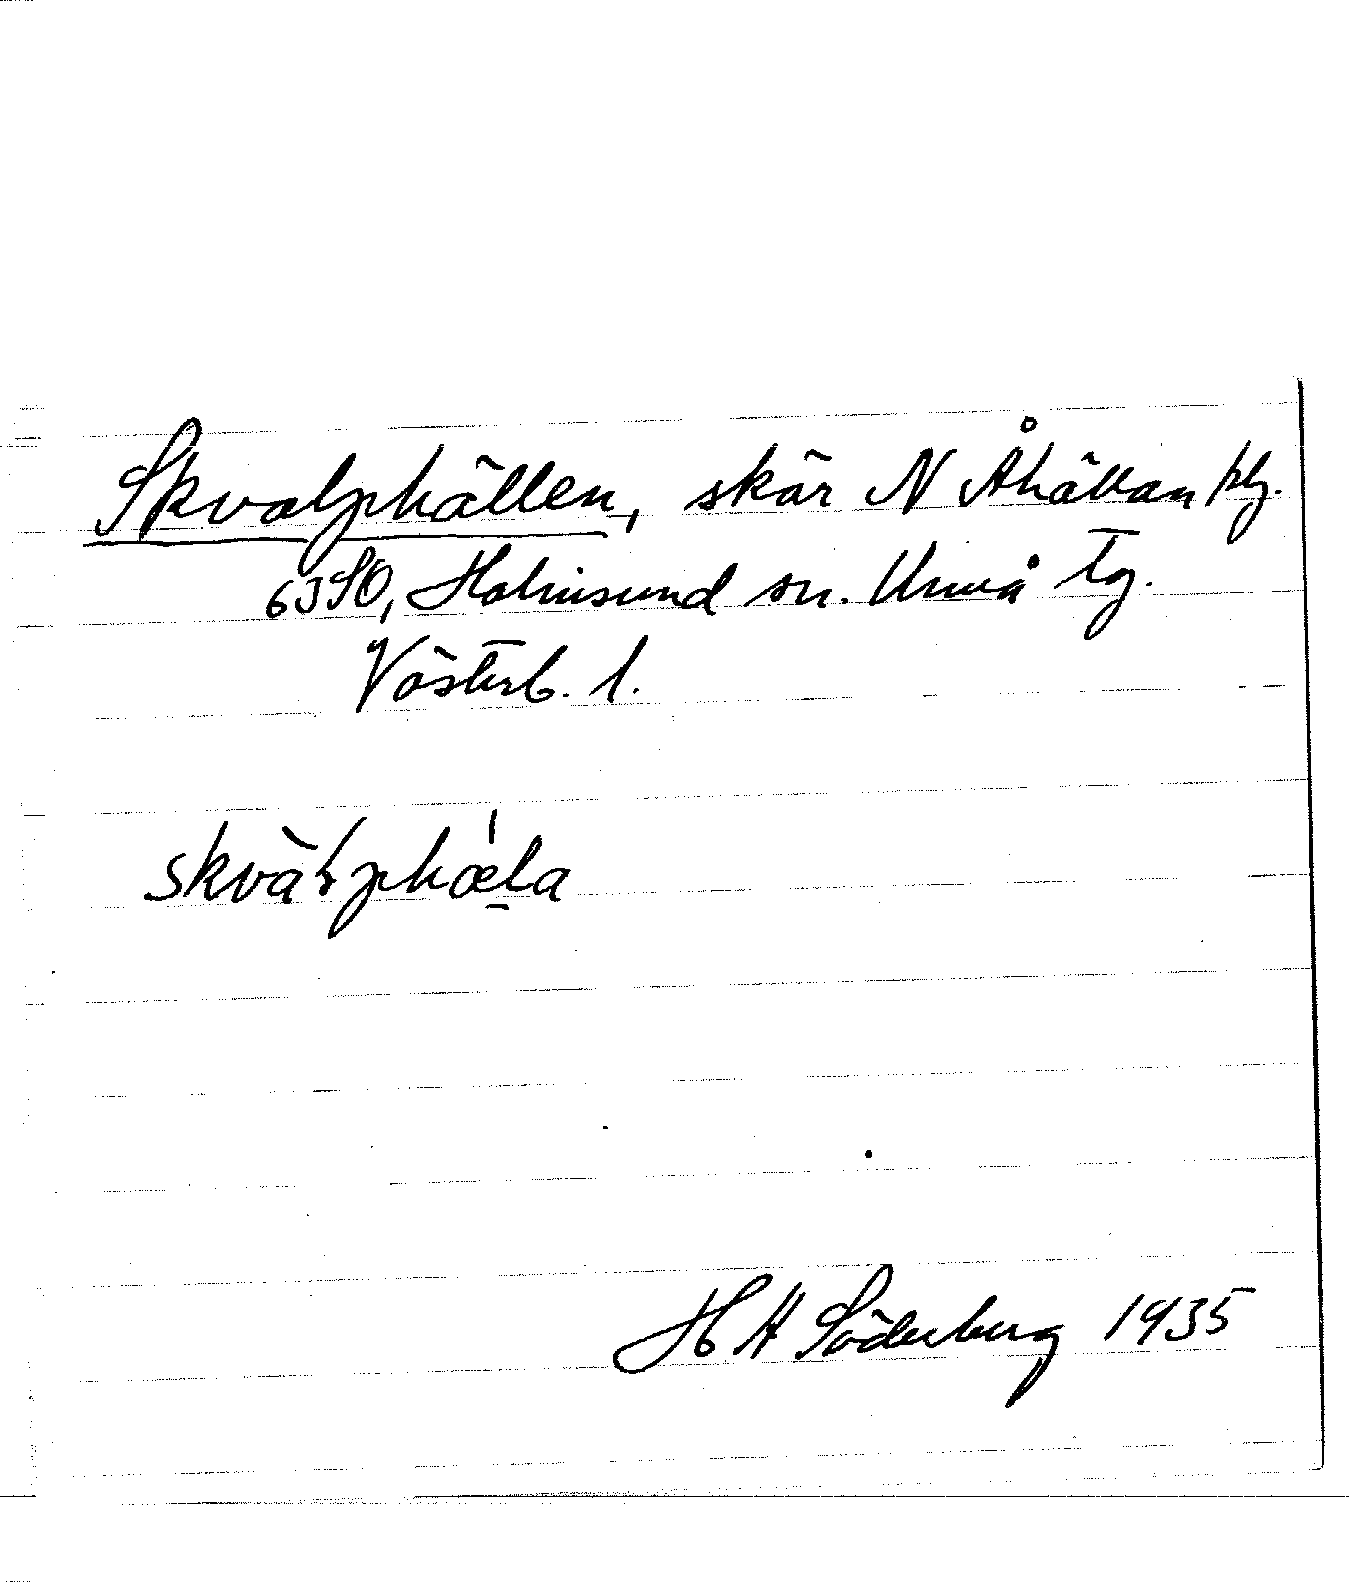 Skvalphällen, skär N Åhällan plg.
6J SO, Holmsund sn. Umeå tg.
Västerb. l.
skvàɫphǽla
H H Söderberg 1935